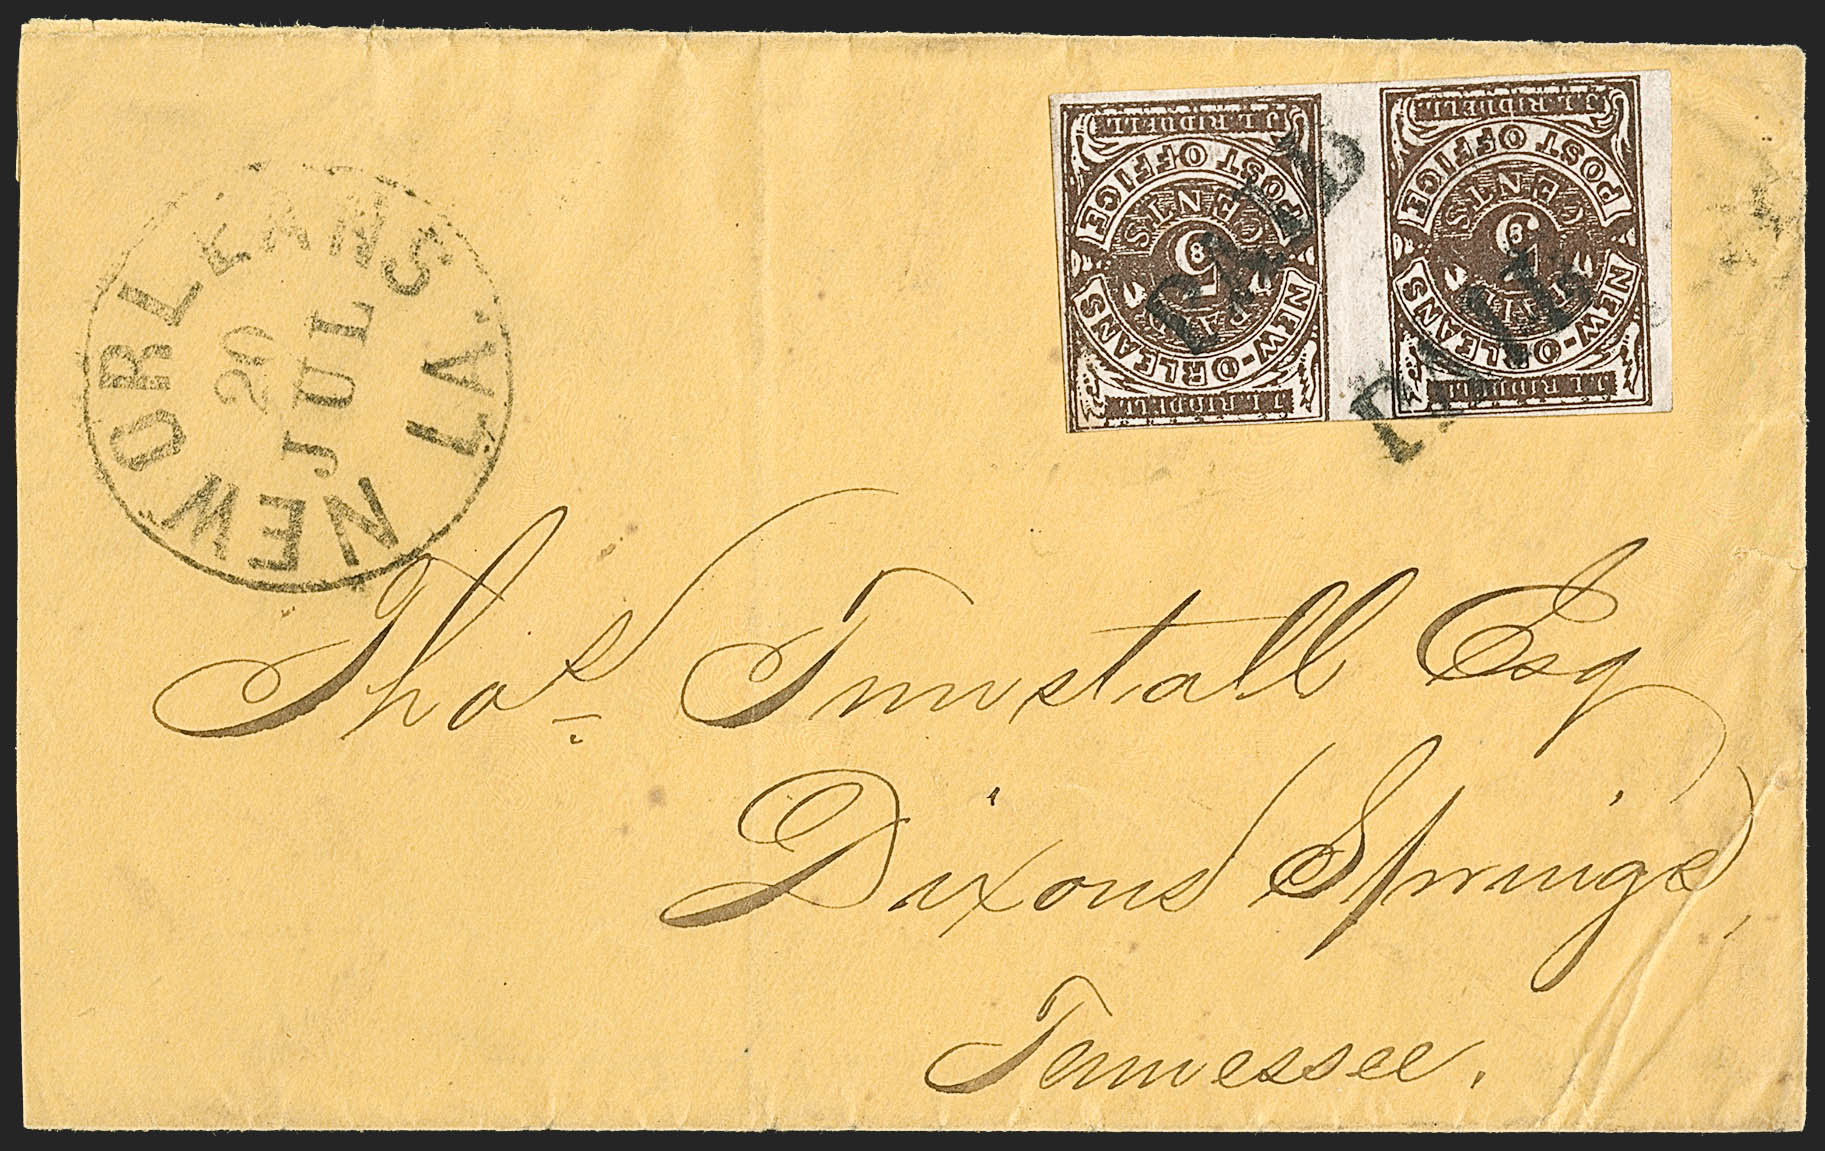 NEW ORLEANS LA.
20
JUL
J. L. RIDDELL.
NEW-ORLEANS
POST OFFICE
PAID
5
CENTS
J. L. RIDDELL.
PAID
J. L. RIDDELL.
NEW-ORLEANS
POST OFFICE
PAID
5
CENTS
J. L. RIDDELL.
PAID
Thos. Tunstall Esq
Dixons Springs,
Tennessee.